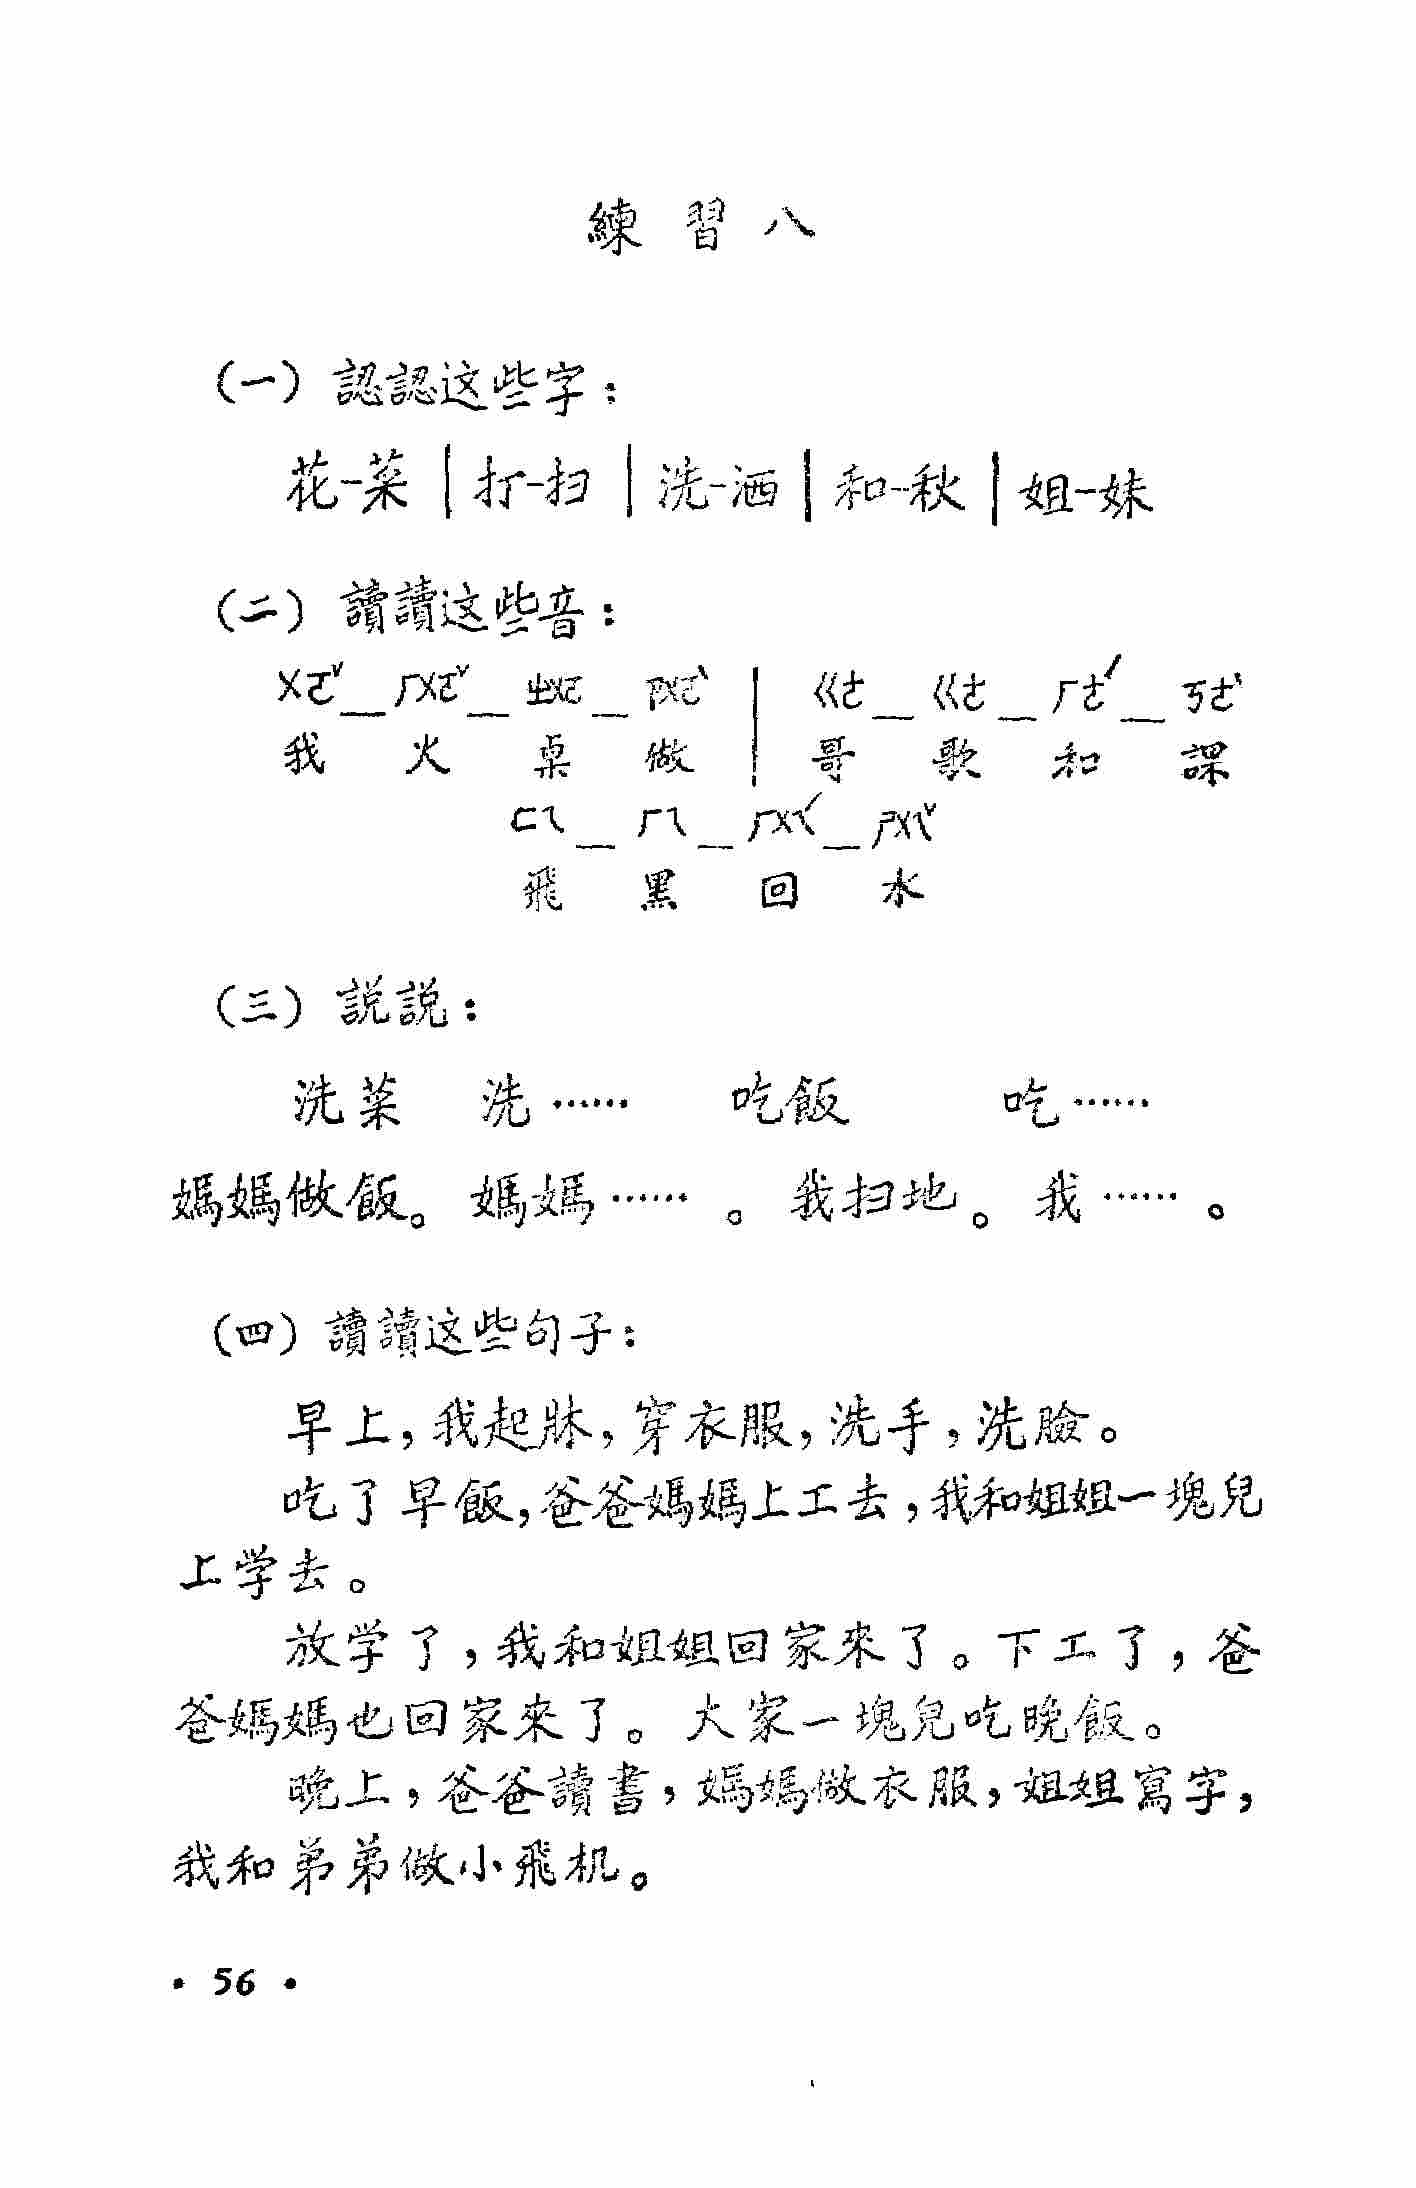 練習八
(一) 認認这些字:
花-菜|打-扫|洗-洒|和-秋|姐-妹
(二) 讀讀这些音:
ㄨㄛˇ_ㄏㄨㄛˇ_ㄓㄨㄛ_ㄗㄨㄛˋ|ㄍㄜ_ㄍㄜ_ㄏㄜˊ_ㄎㄜˋ
我 火 桌 做|哥 歌 和 課
ㄈㄟ_ㄏㄟ_ㄏㄨㄟˊ_ㄕㄨㄟˇ
飛 黑 回 水
(三) 説説:
洗菜 洗…… 吃飯 吃……
媽媽做飯。媽媽……。我扫地。我……。
(四) 讀讀这些句子:
早上,我起牀,穿衣服,洗手,洗臉。
吃了早飯,爸爸媽媽上工去,我和姐姐一塊兒
上学去。
放学了,我和姐姐回家來了。下工了,爸
爸媽媽也回家來了。大家一塊兒吃晚飯。
晚上,爸爸讀書,媽媽做衣服,姐姐寫字,
我和弟弟做小飛机。
• 56 •